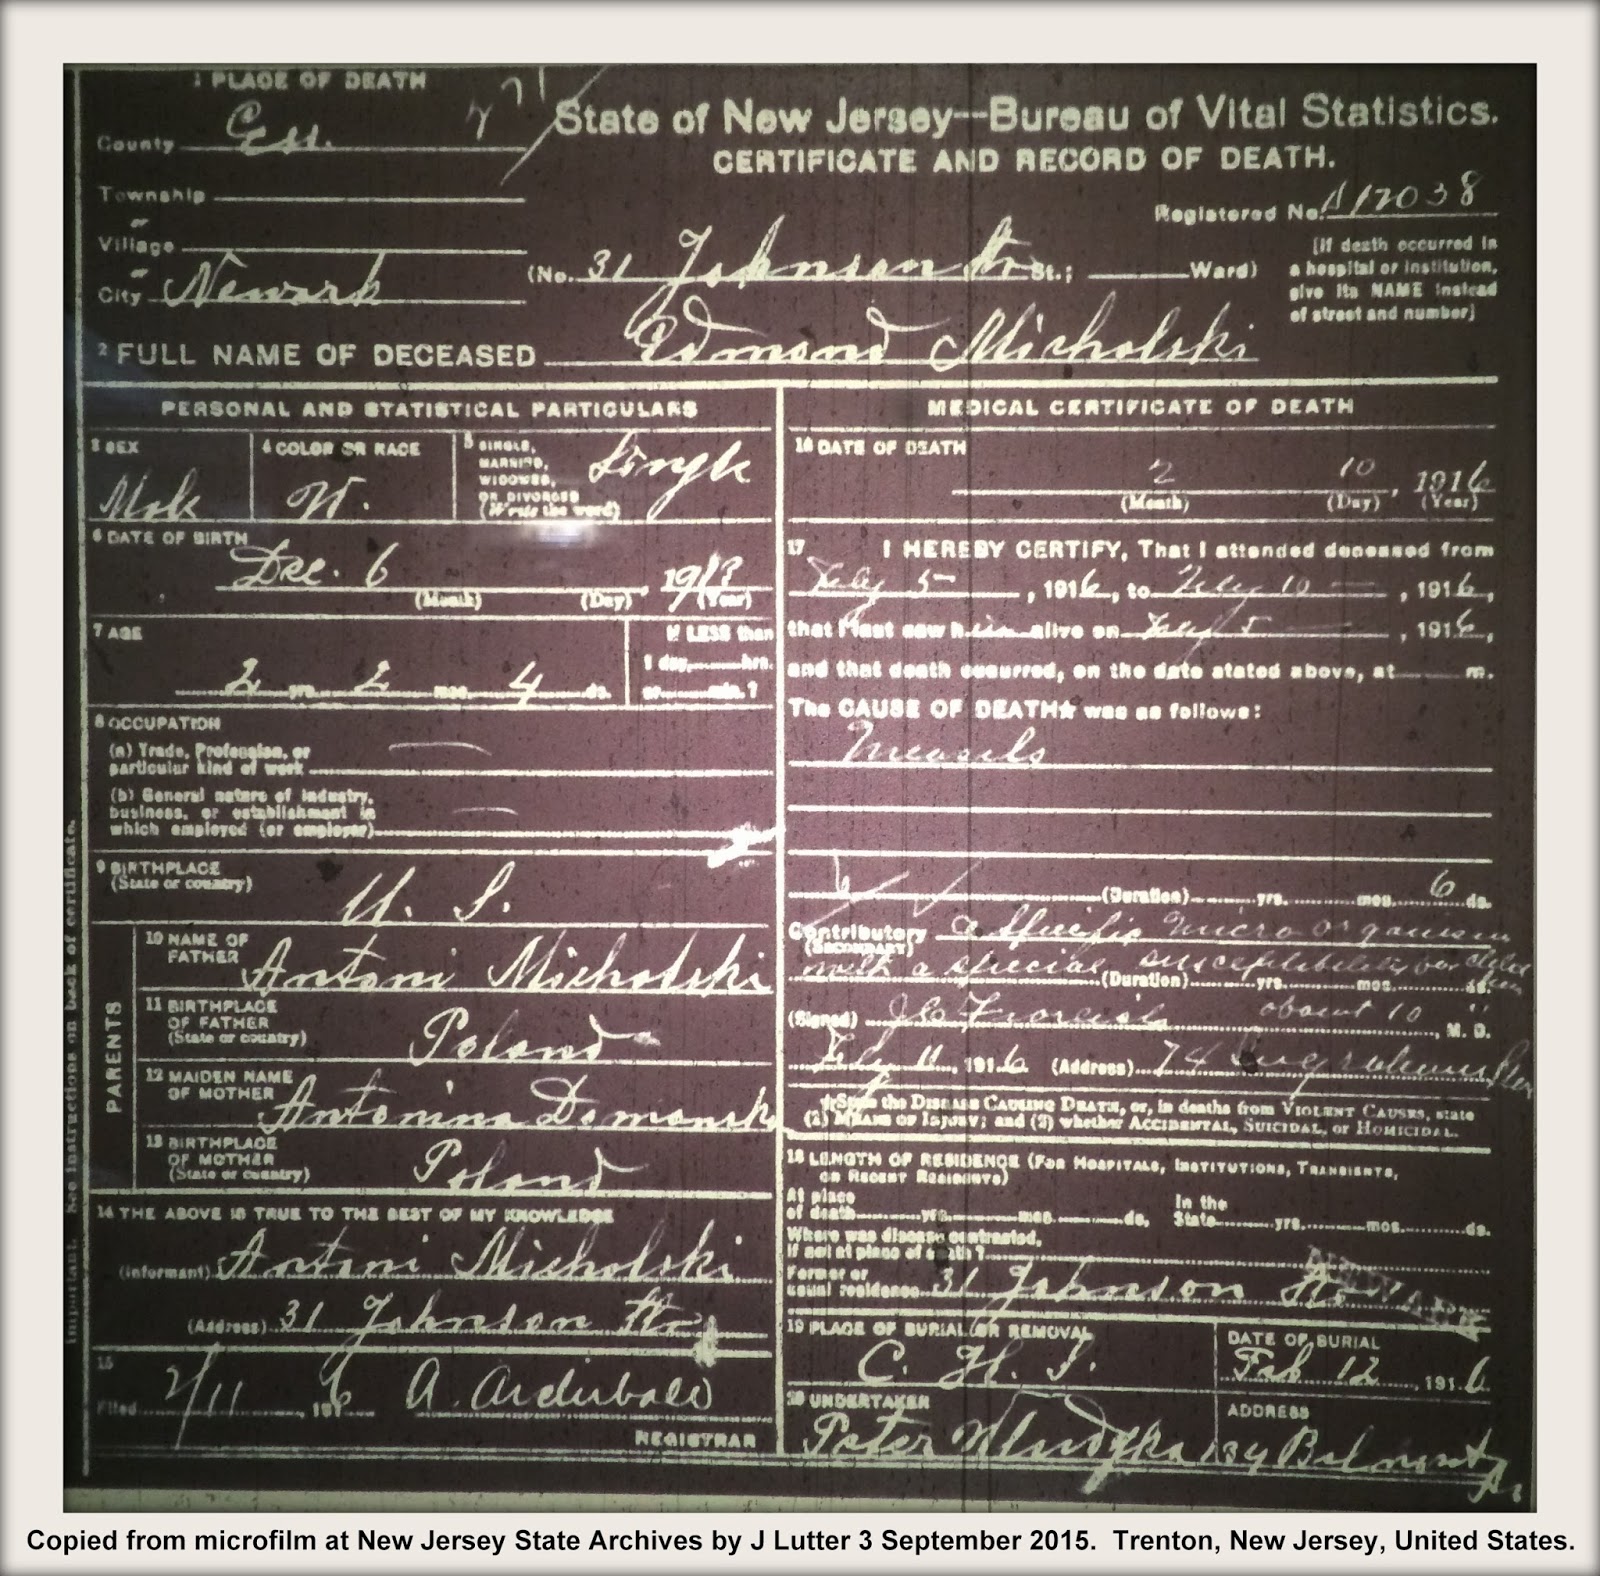 1 PLACE OF DEATH
County Ess.
State of New Jersey—Bureau of Vital Statistics.
CERTIFICATE AND RECORD OF DEATH.
Township
or
Village
or
City Newark
Registered No. A12038
(No. 31 Johnson Str St.; Ward)
[If death occurred in
a hospital or institution,
give its NAME instead
of street and number]
2 FULL NAME OF DECEASED Edmond Micholski
PERSONAL AND STATISTICAL PARTICULARS
3 SEX
Male
4 COLOR OR RACE
W.
5 SINGLE,
MARRIED,
WIDOWED,
OR DIVORCED
(Write the word)
Single
6 DATE OF BIRTH
Dec. 6, 1913
(Month) (Day) (Year)
7 AGE
2 yrs. 2 mos. 4 ds.
If LESS than
1 day, hrs.
or min.?
8 OCCUPATION
(a) Trade, Profession, or
particular kind of work
(b) General nature of industry,
business, or establishment in
which employed (or employer)
9 BIRTHPLACE
(State or country)
U. S.
PARENTS
10 NAME OF
FATHER
Antoni Micholski
11 BIRTHPLACE
OF FATHER
(State or country)
Poland
12 MAIDEN NAME
OF MOTHER
Antonina Domanski
13 BIRTHPLACE
OF MOTHER
(State or country)
Poland
14 THE ABOVE IS TRUE TO THE BEST OF MY KNOWLEDGE
(Informant) Antoni Micholski
(Address) 31 Johnson Str
15
Filed 2/11, 1916 A. Archibald
REGISTRAR
Important. See instructions on back of certificate.
MEDICAL CERTIFICATE OF DEATH
16 DATE OF DEATH
2 10, 1916
(Month) (Day) (Year)
17 I HEREBY CERTIFY, That I attended deceased from
Feby 5, 1916, to Feby 10, 1916,
that I last saw him alive on Feby 5, 1916,
and that death occurred, on the date stated above, at m.
The CAUSE OF DEATH★ was as follows:
Measels
(Duration) yrs. mos. 6 ds.
Contributory a Specific Micro organism
(SECONDARY)
with a special susceptibility
(Duration) yrs. mos. ds.
(Signed) about 10 ", M. D.
Feby 11, 1916 (Address) 74
★State the DISEASE CAUSING DEATH, or, in deaths from VIOLENT CAUSES, state
(1) MEANS OF INJURY; and (2) whether ACCIDENTAL, SUICIDAL, or HOMICIDAL.
18 LENGTH OF RESIDENCE (FOR HOSPITALS, INSTITUTIONS, TRANSIENTS,
OR RECENT RESIDENTS)
At place
of death yrs. mos. ds.
In the
State yrs. mos. ds.
Where was disease contracted,
if not at place of death?
Former or
usual residence 31 Johnson Str
19 PLACE OF BURIAL OR REMOVAL
C. H. S.
DATE OF BURIAL
Feb 12, 1916
20 UNDERTAKER
Peter
ADDRESS
134 Belmont Av
Copied from microfilm at New Jersey State Archives by J Lutter 3 September 2015. Trenton, New Jersey, United States.